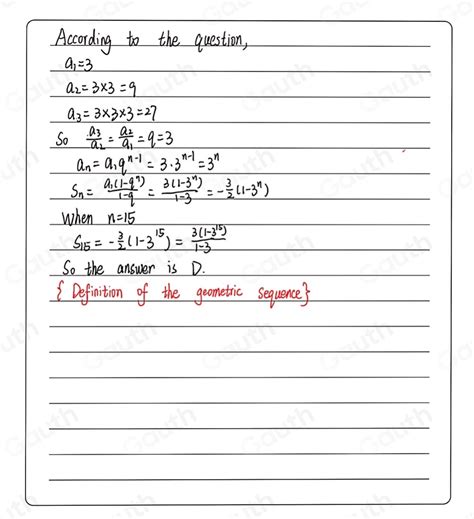 According to the question,
a₁=3
a₂=3×3=9
a₃=3×3×3=27
So a₃/a₂=a₂/a₁=q=3
aₙ=a₁qⁿ⁻¹=3·3ⁿ⁻¹=3ⁿ
Sₙ=a₁(1-qⁿ)/1-q=3(1-3ⁿ)/1-3=-3/2(1-3ⁿ)
When n=15
S₁₅=-3/2(1-3¹⁵)=3(1-3¹⁵)/1-3
So the answer is D.
{Definition of the geometric sequence}
Gauth